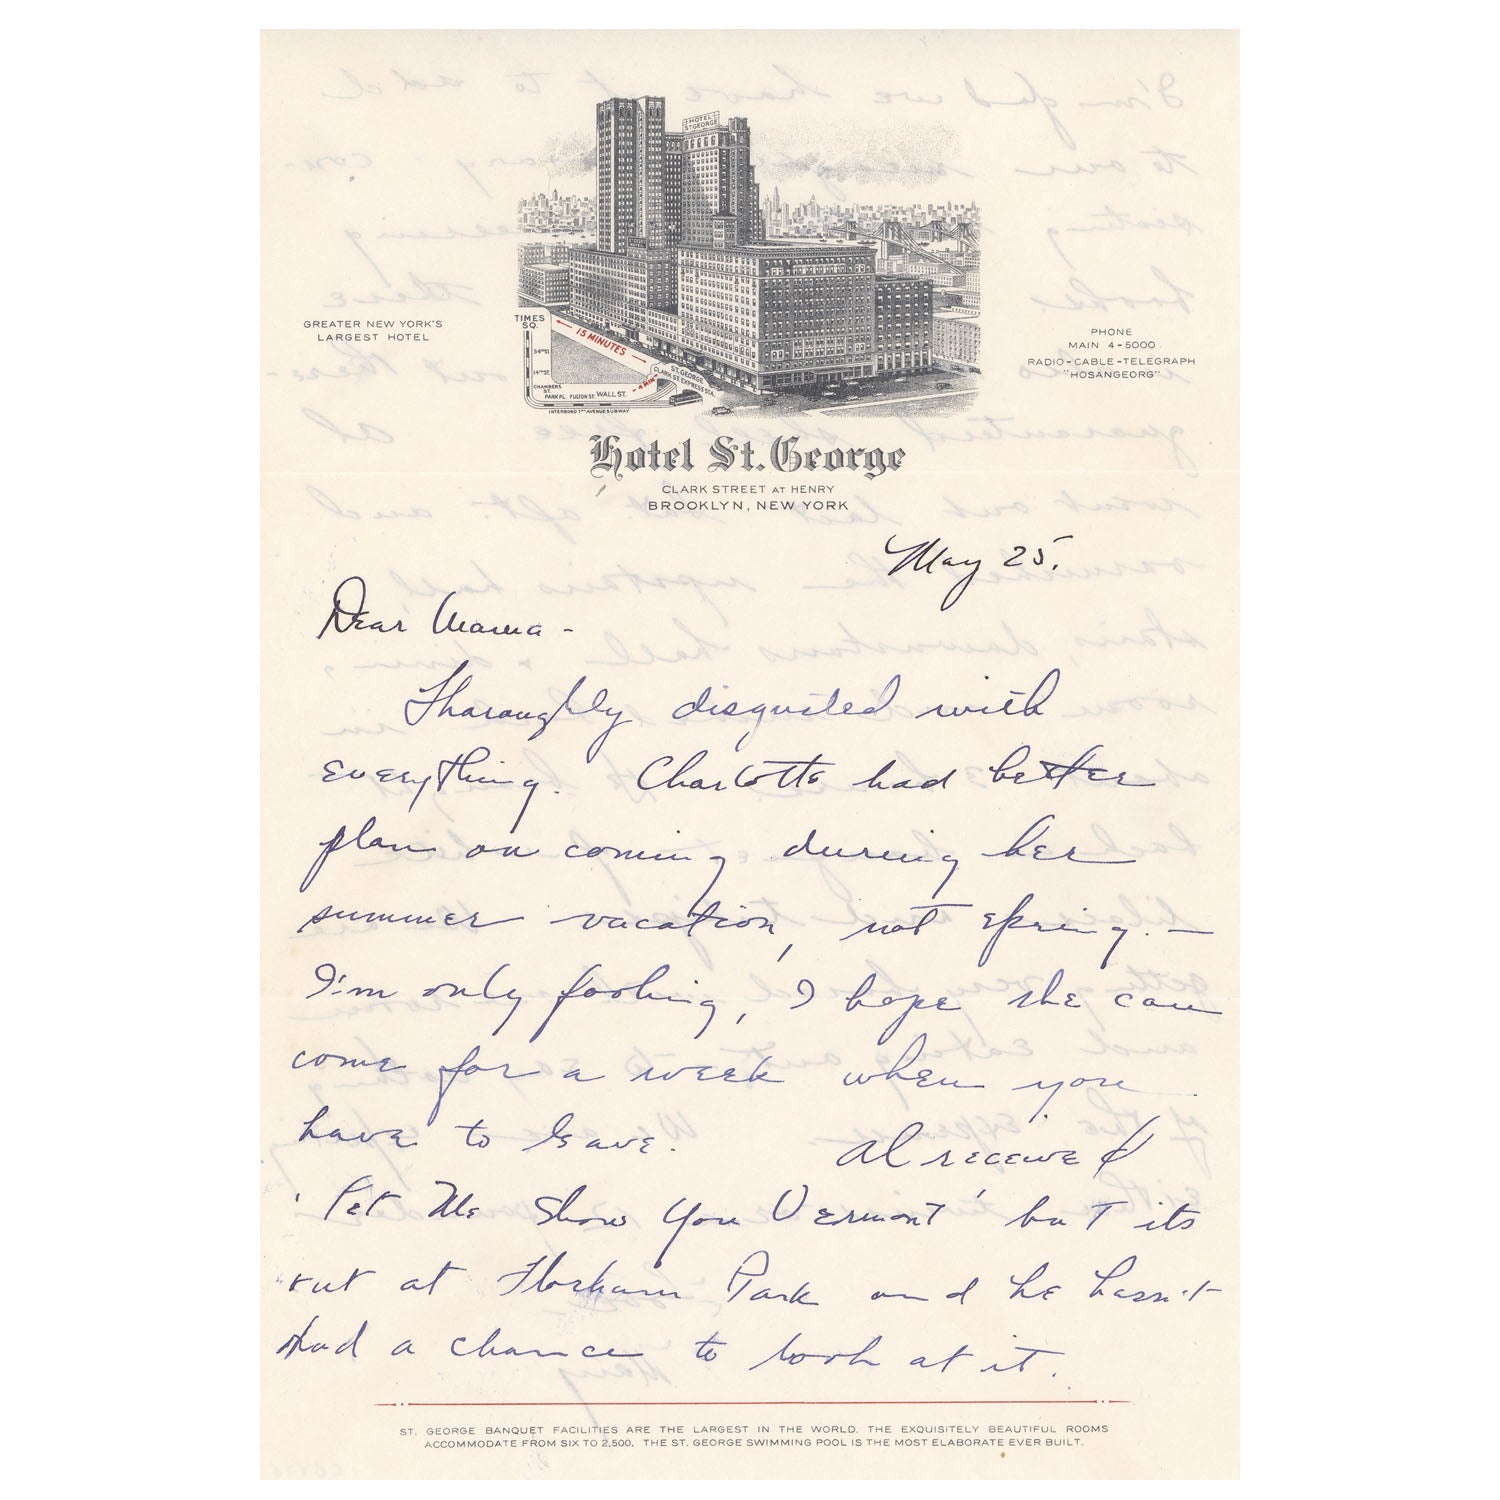 HOTEL
ST GEORGE
GREATER NEW YORK'S
LARGEST HOTEL
TIMES
SQ.
15 MINUTES
34TH ST.
14TH ST.
CHAMBERS
ST.
PARK PL. FULTON ST. WALL ST.
4 MIN
ST. GEORGE
CLARK ST. EXPRESS STA.
INTERBORO 7TH AVENUE SUBWAY
PHONE
MAIN 4-5000
RADIO-CABLE-TELEGRAPH
"HOSANGEORG"
Hotel St. George
CLARK STREET AT HENRY
BROOKLYN, NEW YORK
May 25.
Dear Mama -
Thoroughly disgusted with
everything. Charlotte had better
plan on coming during her
summer vacation, not spring. —
I'm only fooling, I hope she can
come for a week when you
have to leave. Al received
'Let Me Show You Vermont' but its
out at Florham Park and he hasn't
had a chance to look at it.
ST. GEORGE BANQUET FACILITIES ARE THE LARGEST IN THE WORLD. THE EXQUISITELY BEAUTIFUL ROOMS
ACCOMMODATE FROM SIX TO 2,500. THE ST. GEORGE SWIMMING POOL IS THE MOST ELABORATE EVER BUILT.